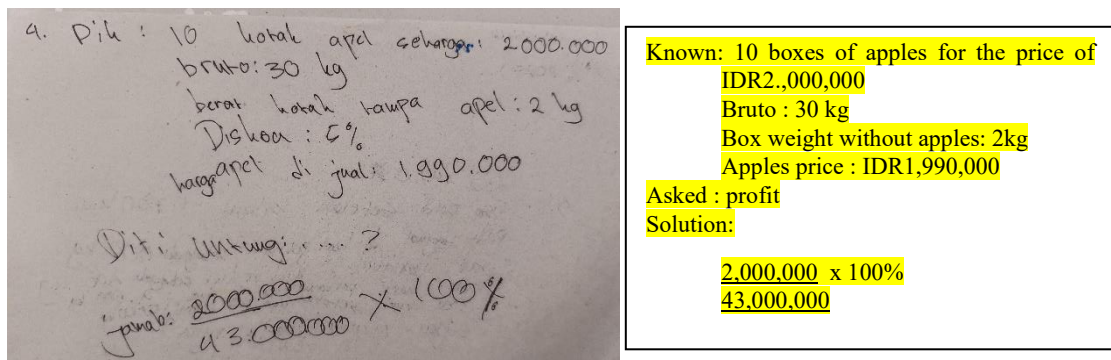 4. Dik : 10 kotak apel seharga: 2000.000
bruto: 30 kg
berat kotak tampa apel: 2 kg
Diskon : 5%
harga apel di jual: 1.990.000
Dit: Untung: .... ?
jawab: 2000.000 X 100%
43.000000
Known: 10 boxes of apples for the price of
IDR2.,000,000
Bruto : 30 kg
Box weight without apples: 2kg
Apples price : IDR1,990,000
Asked : profit
Solution:
2,000,000 x 100%
43,000,000